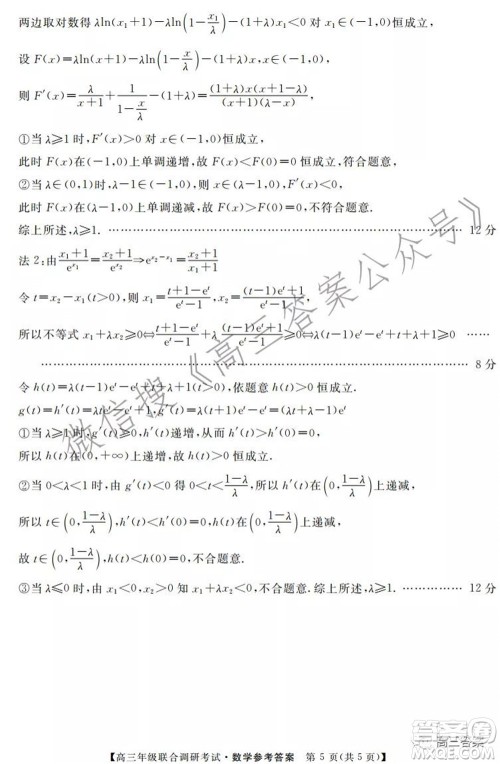 两边取对数得 λln(x₁+1)−λln(1−x₁/λ)−(1+λ)x₁<0 对 x₁∈(−1,0)恒成立.
设 F(x)=λln(x+1)−λln(1−x/λ)−(1+λ)x,x∈(−1,0),
则 F′(x)=λ/(x+1)+1/(1−x/λ)−(1+λ)=(1+λ)x(x+1−λ)/((x+1)(x−λ)),
①当 λ⩾1 时,F′(x)>0 对 x∈(−1,0)恒成立.
此时 F(x)在(−1,0)上单调递增,故 F(x)<F(0)=0 恒成立,符合题意.
②当 λ∈(0,1)时,λ−1∈(−1,0),当 x∈(λ−1,0)时,则 F′(x)<0,
此时 F(x)在(λ−1,0)上单调递减,故 F(x)>F(0)=0,不符合题意.
综上所述,λ⩾1. 12 分
法 2:由(x₁+1)/eˣ¹=(x₂+1)/eˣ²⇒eˣ²⁻ˣ¹=(x₂+1)/(x₁+1).
令 t=x₂−x₁(t>0),则 x₁=(t+1−eᵗ)/(eᵗ−1),
所以不等式 x₁+λx₂⩾0⇔(t+1−eᵗ)/(eᵗ−1)+λ
8 分
令 h(t)=λ(t−1)eᵗ−eᵗ+λ+t+1,依题意 h(t)⩾0 恒成立.
①当 λ⩾1 时,g′(t)>0,h′(t)递增,从而 h′(t)>h′(0)=0,
所以 h(t)在(0,+∞)上递增,故 h(t)>h(0)=0 恒成立.
②当 0<λ<1 时,由 g′(t)<0 得 h′(t)在(0,(1−λ)/λ)上递减,
所以 t∈(0,(1−λ)/λ),h′(t)<h′(0)=0,所以 h(t)在(0,(1−λ)/λ)上递减,
故 t∈(0,(1−λ)/λ),h(t)<h(0)=0,不合题意.
③当 λ⩽0 时,由 x₁<0,x₂>0 知 x₁+λx₂<0,不合题意. 综上所述,λ⩾1. 12 分
微信搜《高三答案公众号》
【高三年级联合调研考试·数学参考答案 第 5 页(共 5 页)】
高三答案